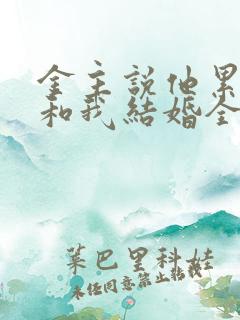 金主說他累
和我結婚全
葉巴里科娃
未经同意禁止転載